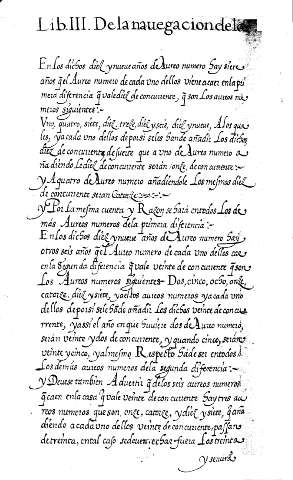 Lib. III. De la nauegacion de la
En los dichos diez y nueue años de Aureo numero hay siete
años q̃ el Aureo numero de cada vno dellos viene a caer en la pri
mera diferencia q̃ vale diez de concurrente, q̃ son los aureos nu
meros siguientes.
Vno, quatro, siete, diez, treze, diez y seis, diez y nueue, A los qua
les, ya cada vno dellos de por si se les ha de añadir los dichos
diez de concurrente de suerte que a vno de Aureo numero a
ñadiendole diez de concurrente serán onze, de concurrente
y A quatro de Aureo numero añadiendole los mesmos diez
de concurrente seran Catorze
y Por la mesma cuenta y Razon se hará en todos los de
más Aureos numeros de la primera diferencia:
En los dichos diez y nueue años de Aureo numero hay
otros seis años que el Aureo numero de cada vno dellos cae
en la segunda diferencia q̃ vale veinte de concurrente q̃ son
los Aureos numeros siguientes Dos, cinco, ocho, onze,
catorze, diez y siete, y a ellos aureos numeros y a cada vno
dellos de por si se le ha de añadir los dichos veinte de concu
rrente, y assi el año en que huuiere dos de Aureo numero,
serán veinte y dos de concurrente, y quando cinco, serán
veinte y cinco, y al mesmo Respetto ha de ser en todos
los demás aureos numeros de la segunda diferencia:
y Deuese tambien Aduertir q̃ de los seis aureos numeros
q̃ caen en la casa q̃ vale veinte de concurrente hay tres au
reos numeros que son, onze, catorze, y diez y siete, q̃ aña
diendo a cada vno dellos veinte de concurrente, passan
de treinta, en tal caso se deuen echar fuera los treinta
y seruirá